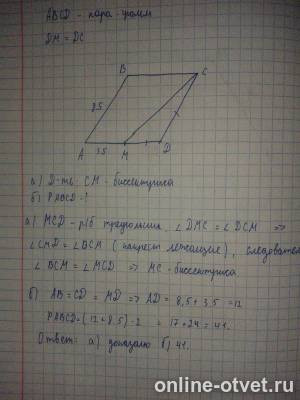 ABCD - пара-грамм
DM = DC
B
C
8,5
A
3,5
M
D
а) Д-ть: CM - биссектриса
б) PABCD - ?
а) MCD - р/б треугольник, ∠DMC = ∠DCM =>
∠CMD = ∠BCM (накрест лежащие), следовател
∠BCM = ∠MCD => MC - биссектриса
б) AB = CD = MD => AD = 8,5 + 3,5 = 12
PABCD = (12 + 8,5) · 2 = 17 + 24 = 41.
Ответ: а) доказано б) 41.
online-otvet.ru